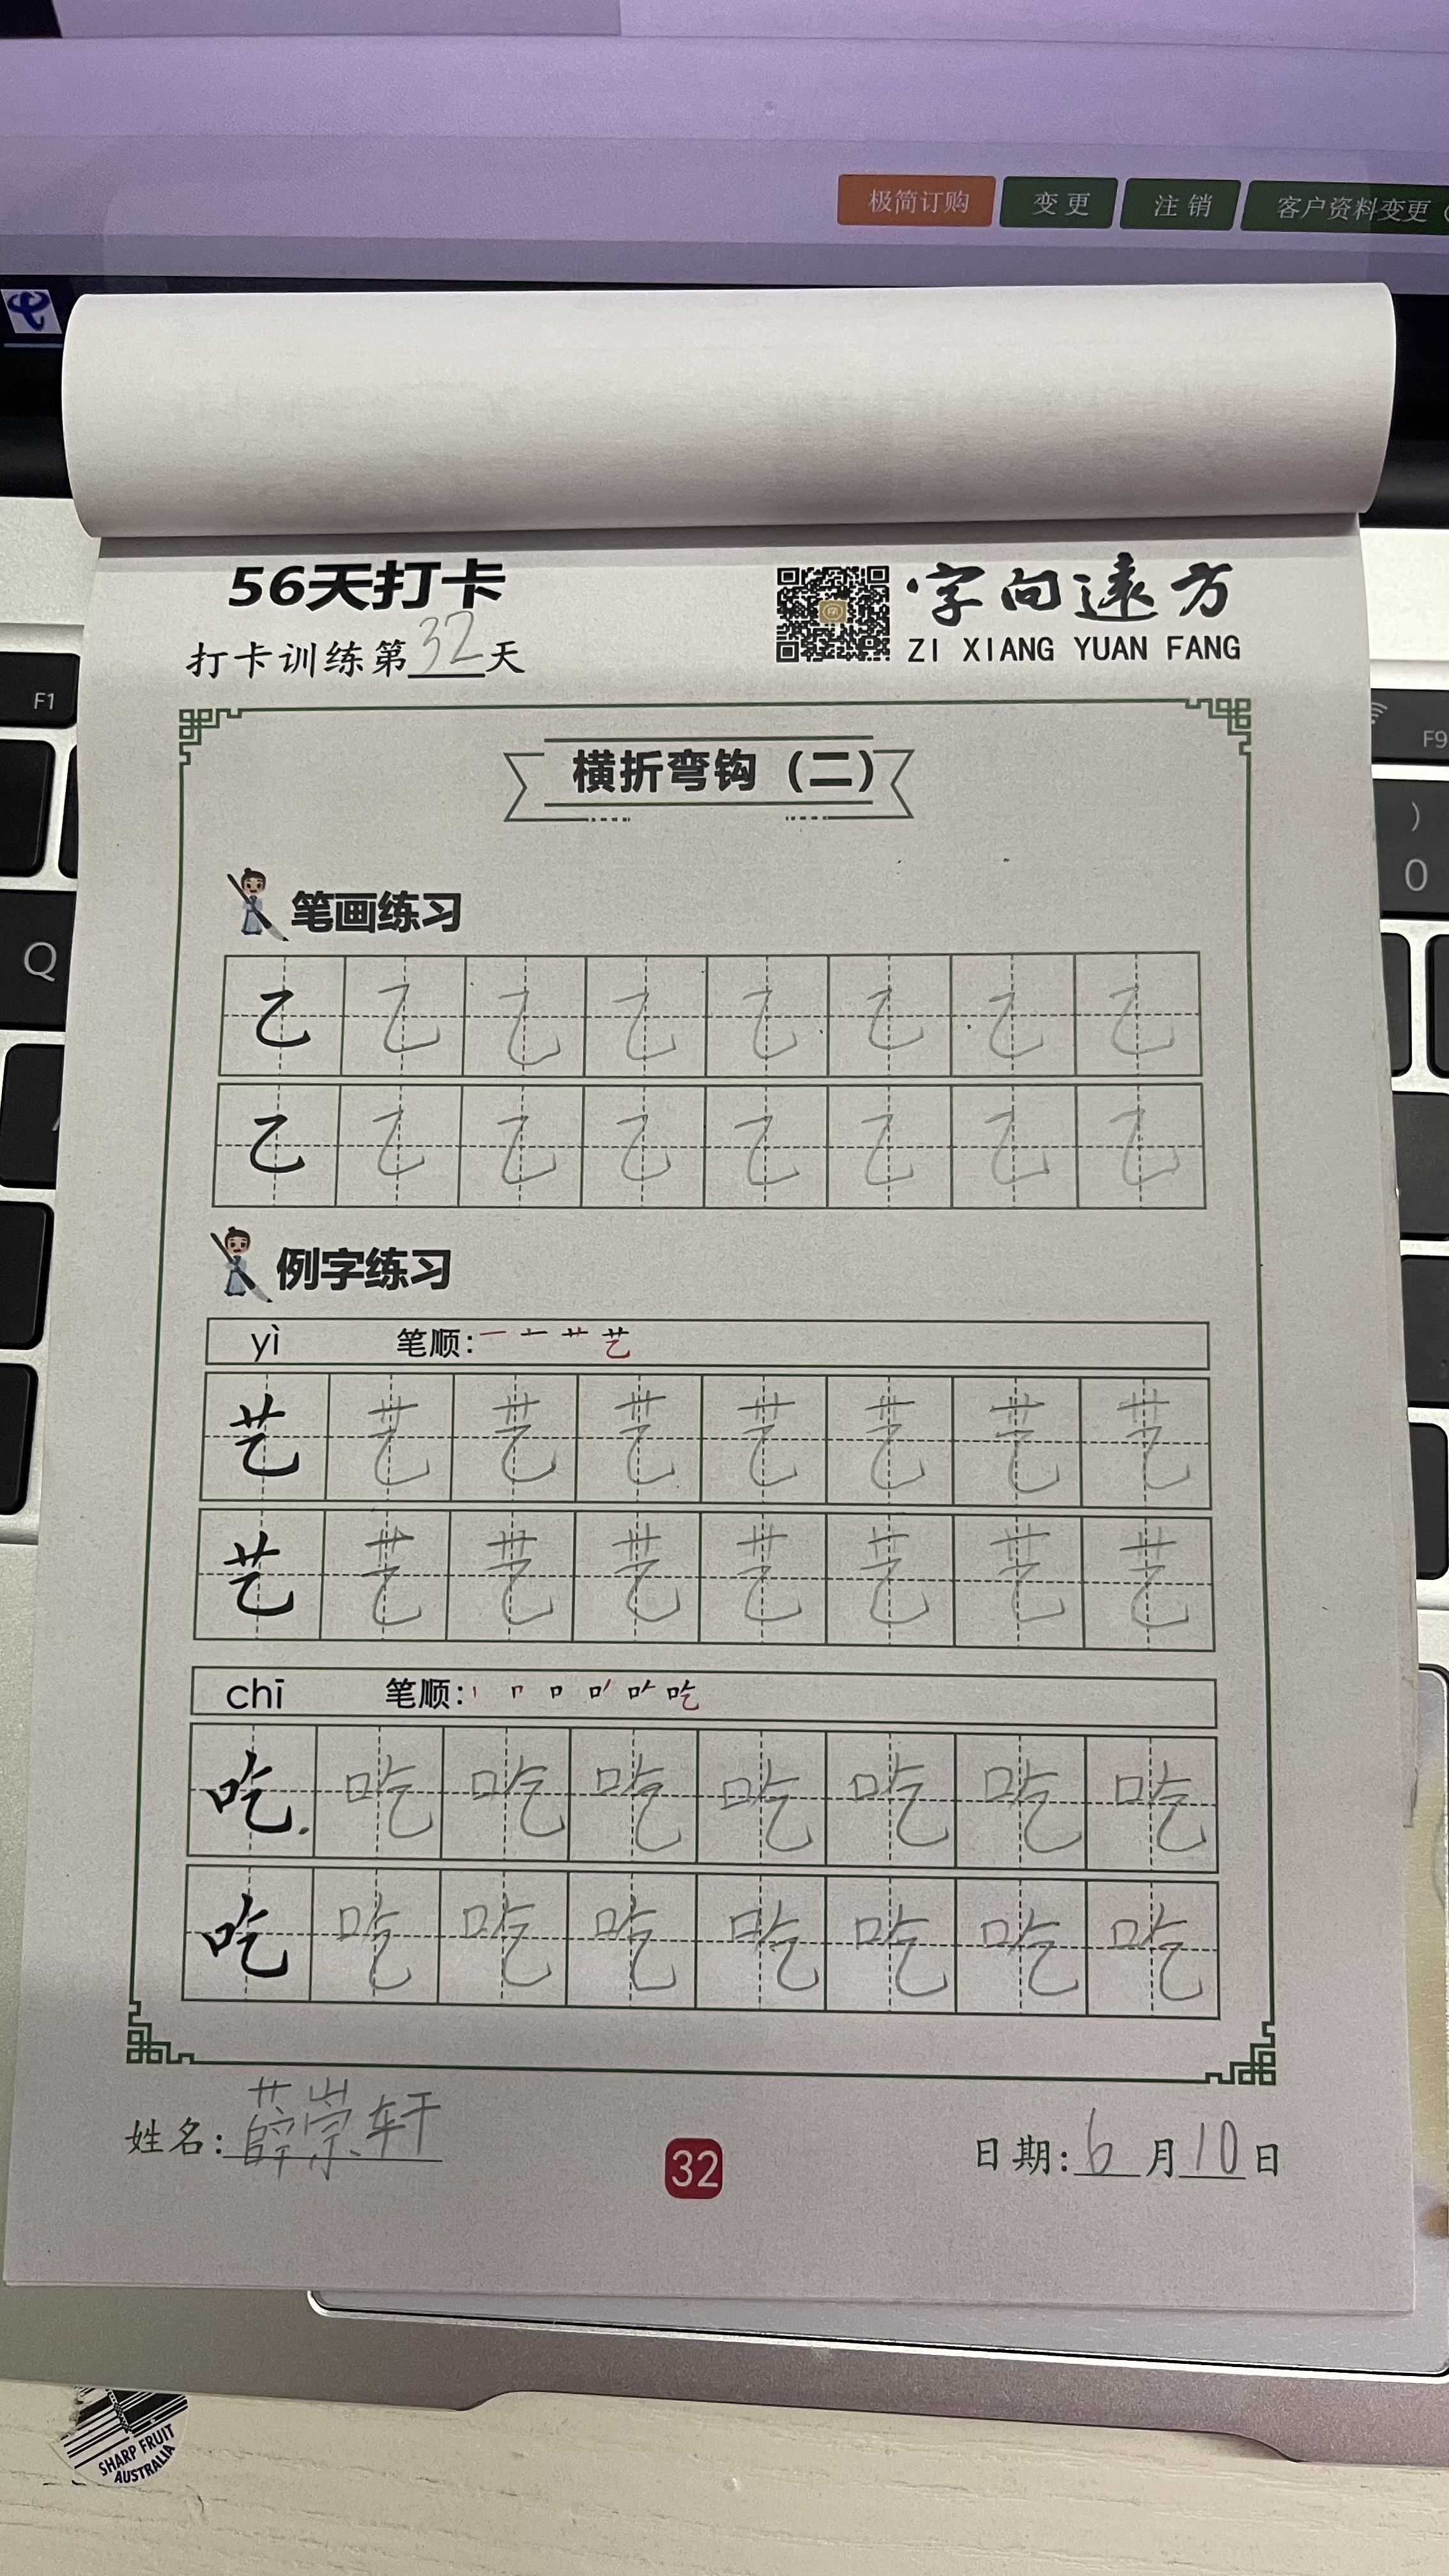 极简订购 变更 注销 客户资料变更
56天打卡
字向遠方
打卡训练第32天
ZI XIANG YUAN FANG
F1
F9
横折弯钩（二）
)
0
Q
笔画练习
乙 乙 乙 乙 乙 乙 乙 乙
乙 乙 乙 乙 乙 乙 乙 乙
例字练习
yì 笔顺: 一 十 艹 艺
艺 艺 艺 艺 艺 艺 艺 艺
艺 艺 艺 艺 艺 艺 艺 艺
chī 笔顺: 丨 𠃍 口 吃
吃 吃 吃 吃 吃 吃 吃 吃
吃 吃 吃 吃 吃 吃 吃 吃
姓名: 薛崇轩
32
日期: 6月10日
SHARP FRUIT
AUSTRALIA